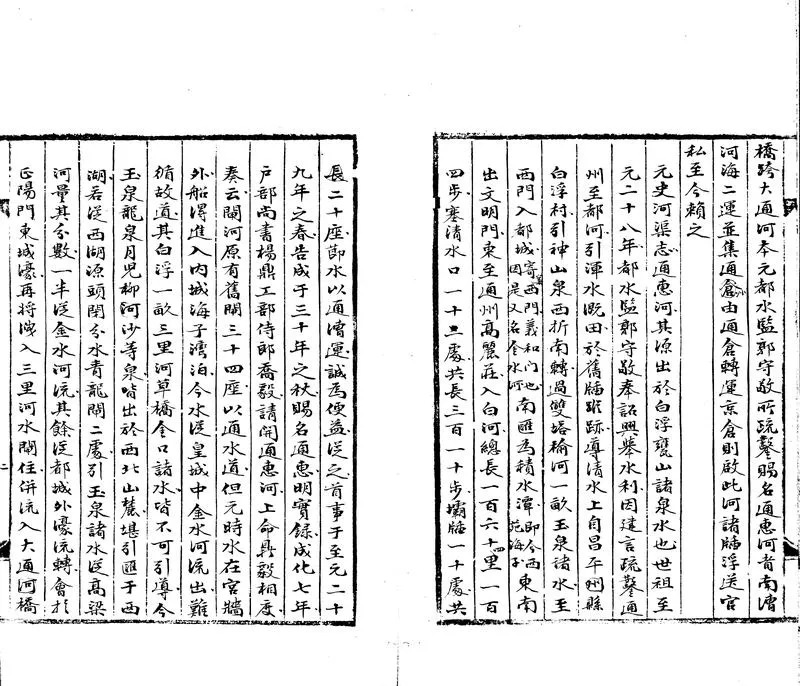 橋跨大通河本元都水監郭守敬所疏鑿賜名通惠河者南漕
河海二運並集通倉由通倉轉運京倉則啟此河諸牐浮送官
私至今賴之
元史河渠志通惠河其源出於白浮甕山諸泉水也世祖至
元二十八年都水監郭守敬奉詔興舉水利因建言疏鑿通
州至都河引渾水溉田於舊牐蹤跡導清水上自昌平州縣
白浮村引神山泉西折南轉過雙塔榆河一畝玉泉諸水至
西門入都城寄西門義和門也因是又名金水河南匯為積水潭即今西苑海子東南
出文明門東至通州高麗莊入白河總長一百六十四里一百
四步塞清水口一十二處共長三百一十步壩牐一十處共
長二十座節水以通漕運誠為便益從之首事于至元二十
九年之春告成于三十年之秋賜名通惠明實錄成化七年
户部尚書楊鼎工部侍郎喬毅請開通惠河上命鼎毅相度
奏云閘河原有舊閘三十四座以通水道但元時水在宮牆
外船得進入內城海子灣泊今水從皇城中金水河流出難
循故道其白浮一畝三里河草橋金口諸水皆不可引導今
玉泉龍泉月兒柳河沙等泉皆出於西北山麓堪引匯于西
湖若從西湖源頭閉分水青龍閘二處引玉泉諸水從高梁
河量其分數一半從金水河流其餘從都城外濠流轉會於
正陽門東城濠再將洩入三里河水閘住併流入大通河橋
二